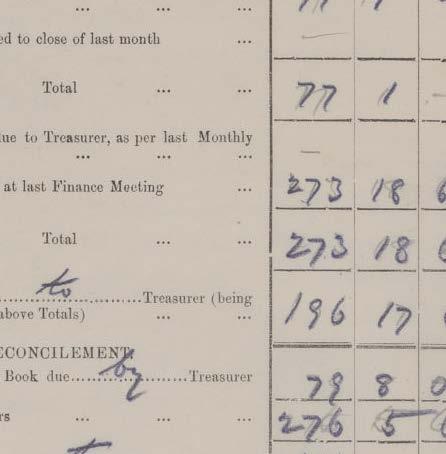 ... ... ...
ed to close of last month ... —
Total ... ... 77 1 -
due to Treasurer, as per last Monthly
... ... ... —
at last Finance Meeting ... 273 18 6
Total ... ... 273 18 6
to Treasurer (being
above Totals) ... ... 196 17
ECONCILEMENT
Book due by Treasurer 79 8 0
rs ... ... ... 276 5